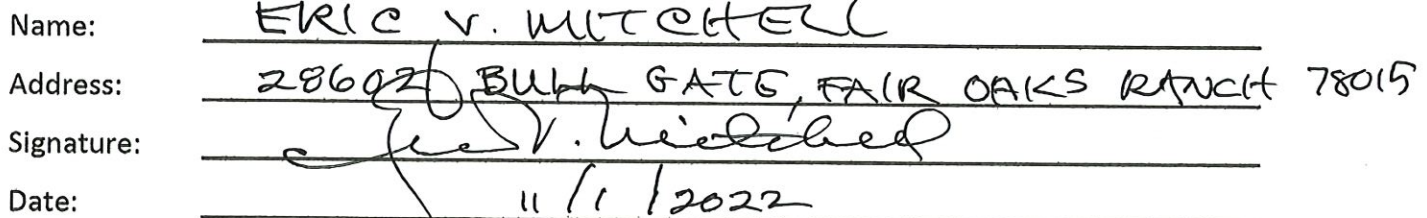 Name: ERIC V. MITCHELL
Address: 28602 BULL GATE, FAIR OAKS RANCH 78015
Signature: Eric V. Mitchell
Date: 11/1/2022